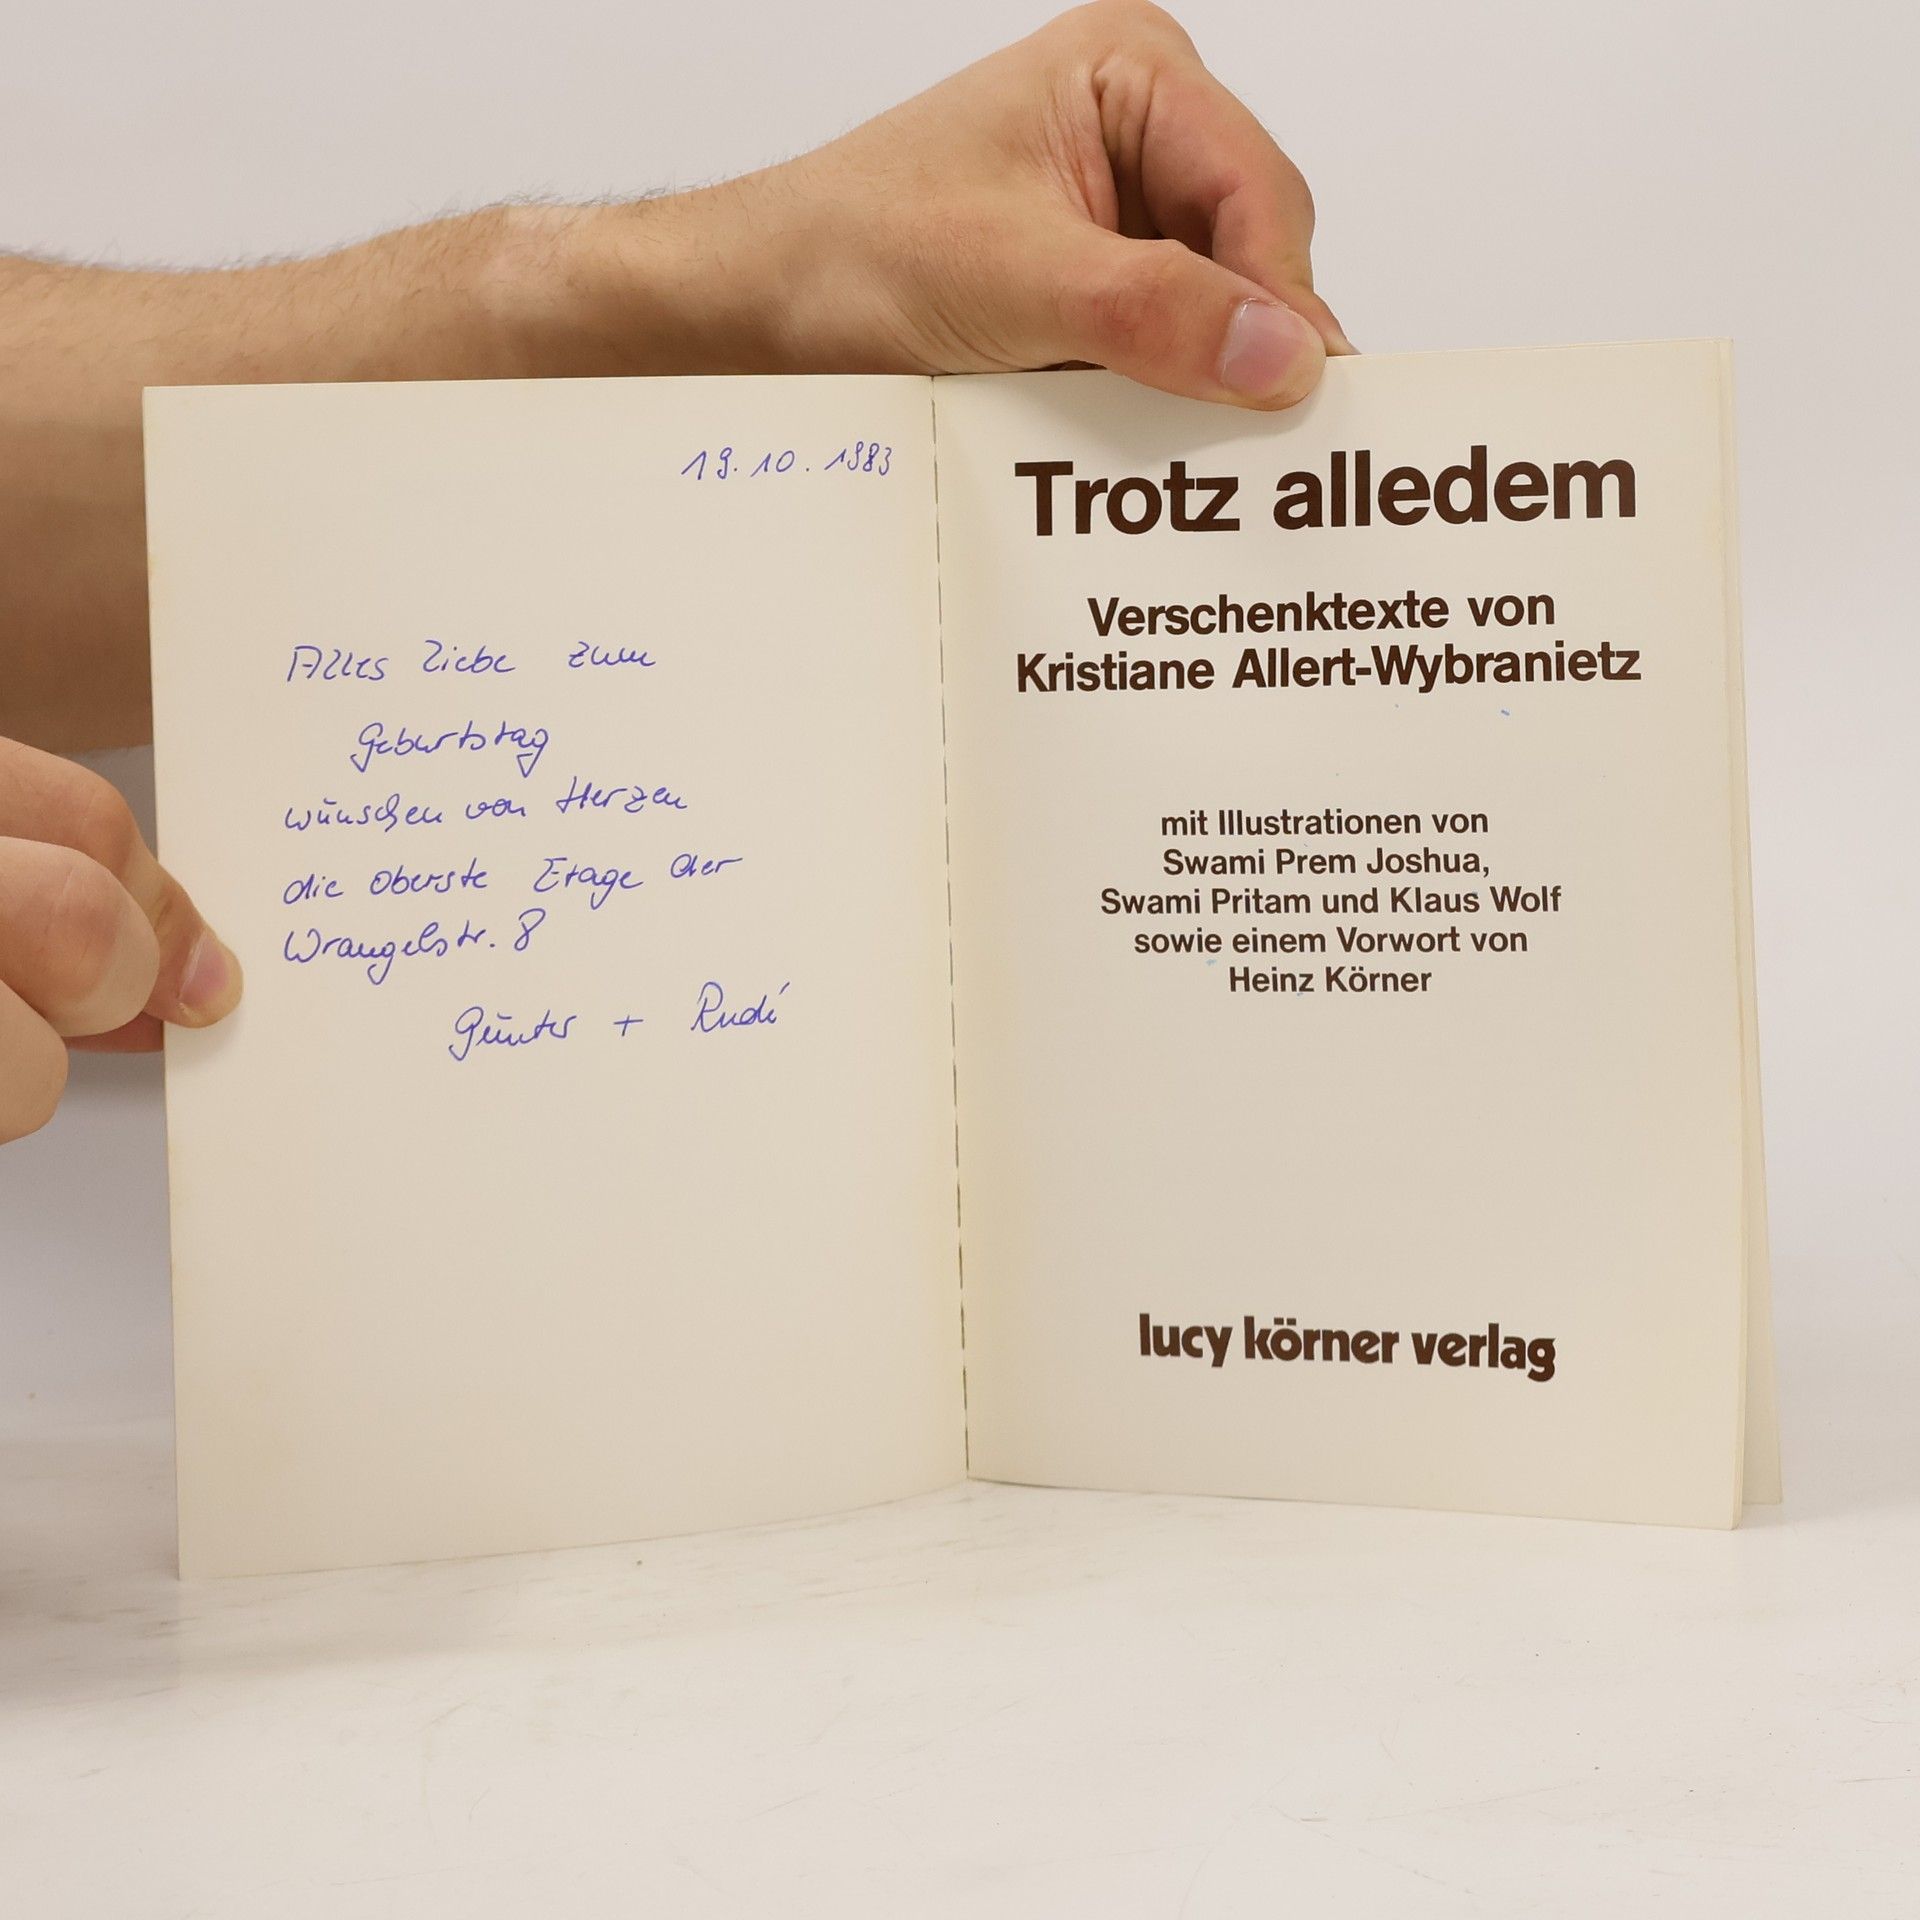 19.10.1983
Alles Liebe zum
Geburtstag
wünschen von Herzen
die oberste Etage der
Wrangelstr. 8
Günter + Rudi
Trotz alledem
Verschenktexte von
Kristiane Allert-Wybranietz
mit Illustrationen von
Swami Prem Joshua,
Swami Pritam und Klaus Wolf
sowie einem Vorwort von
Heinz Körner
lucy körner verlag